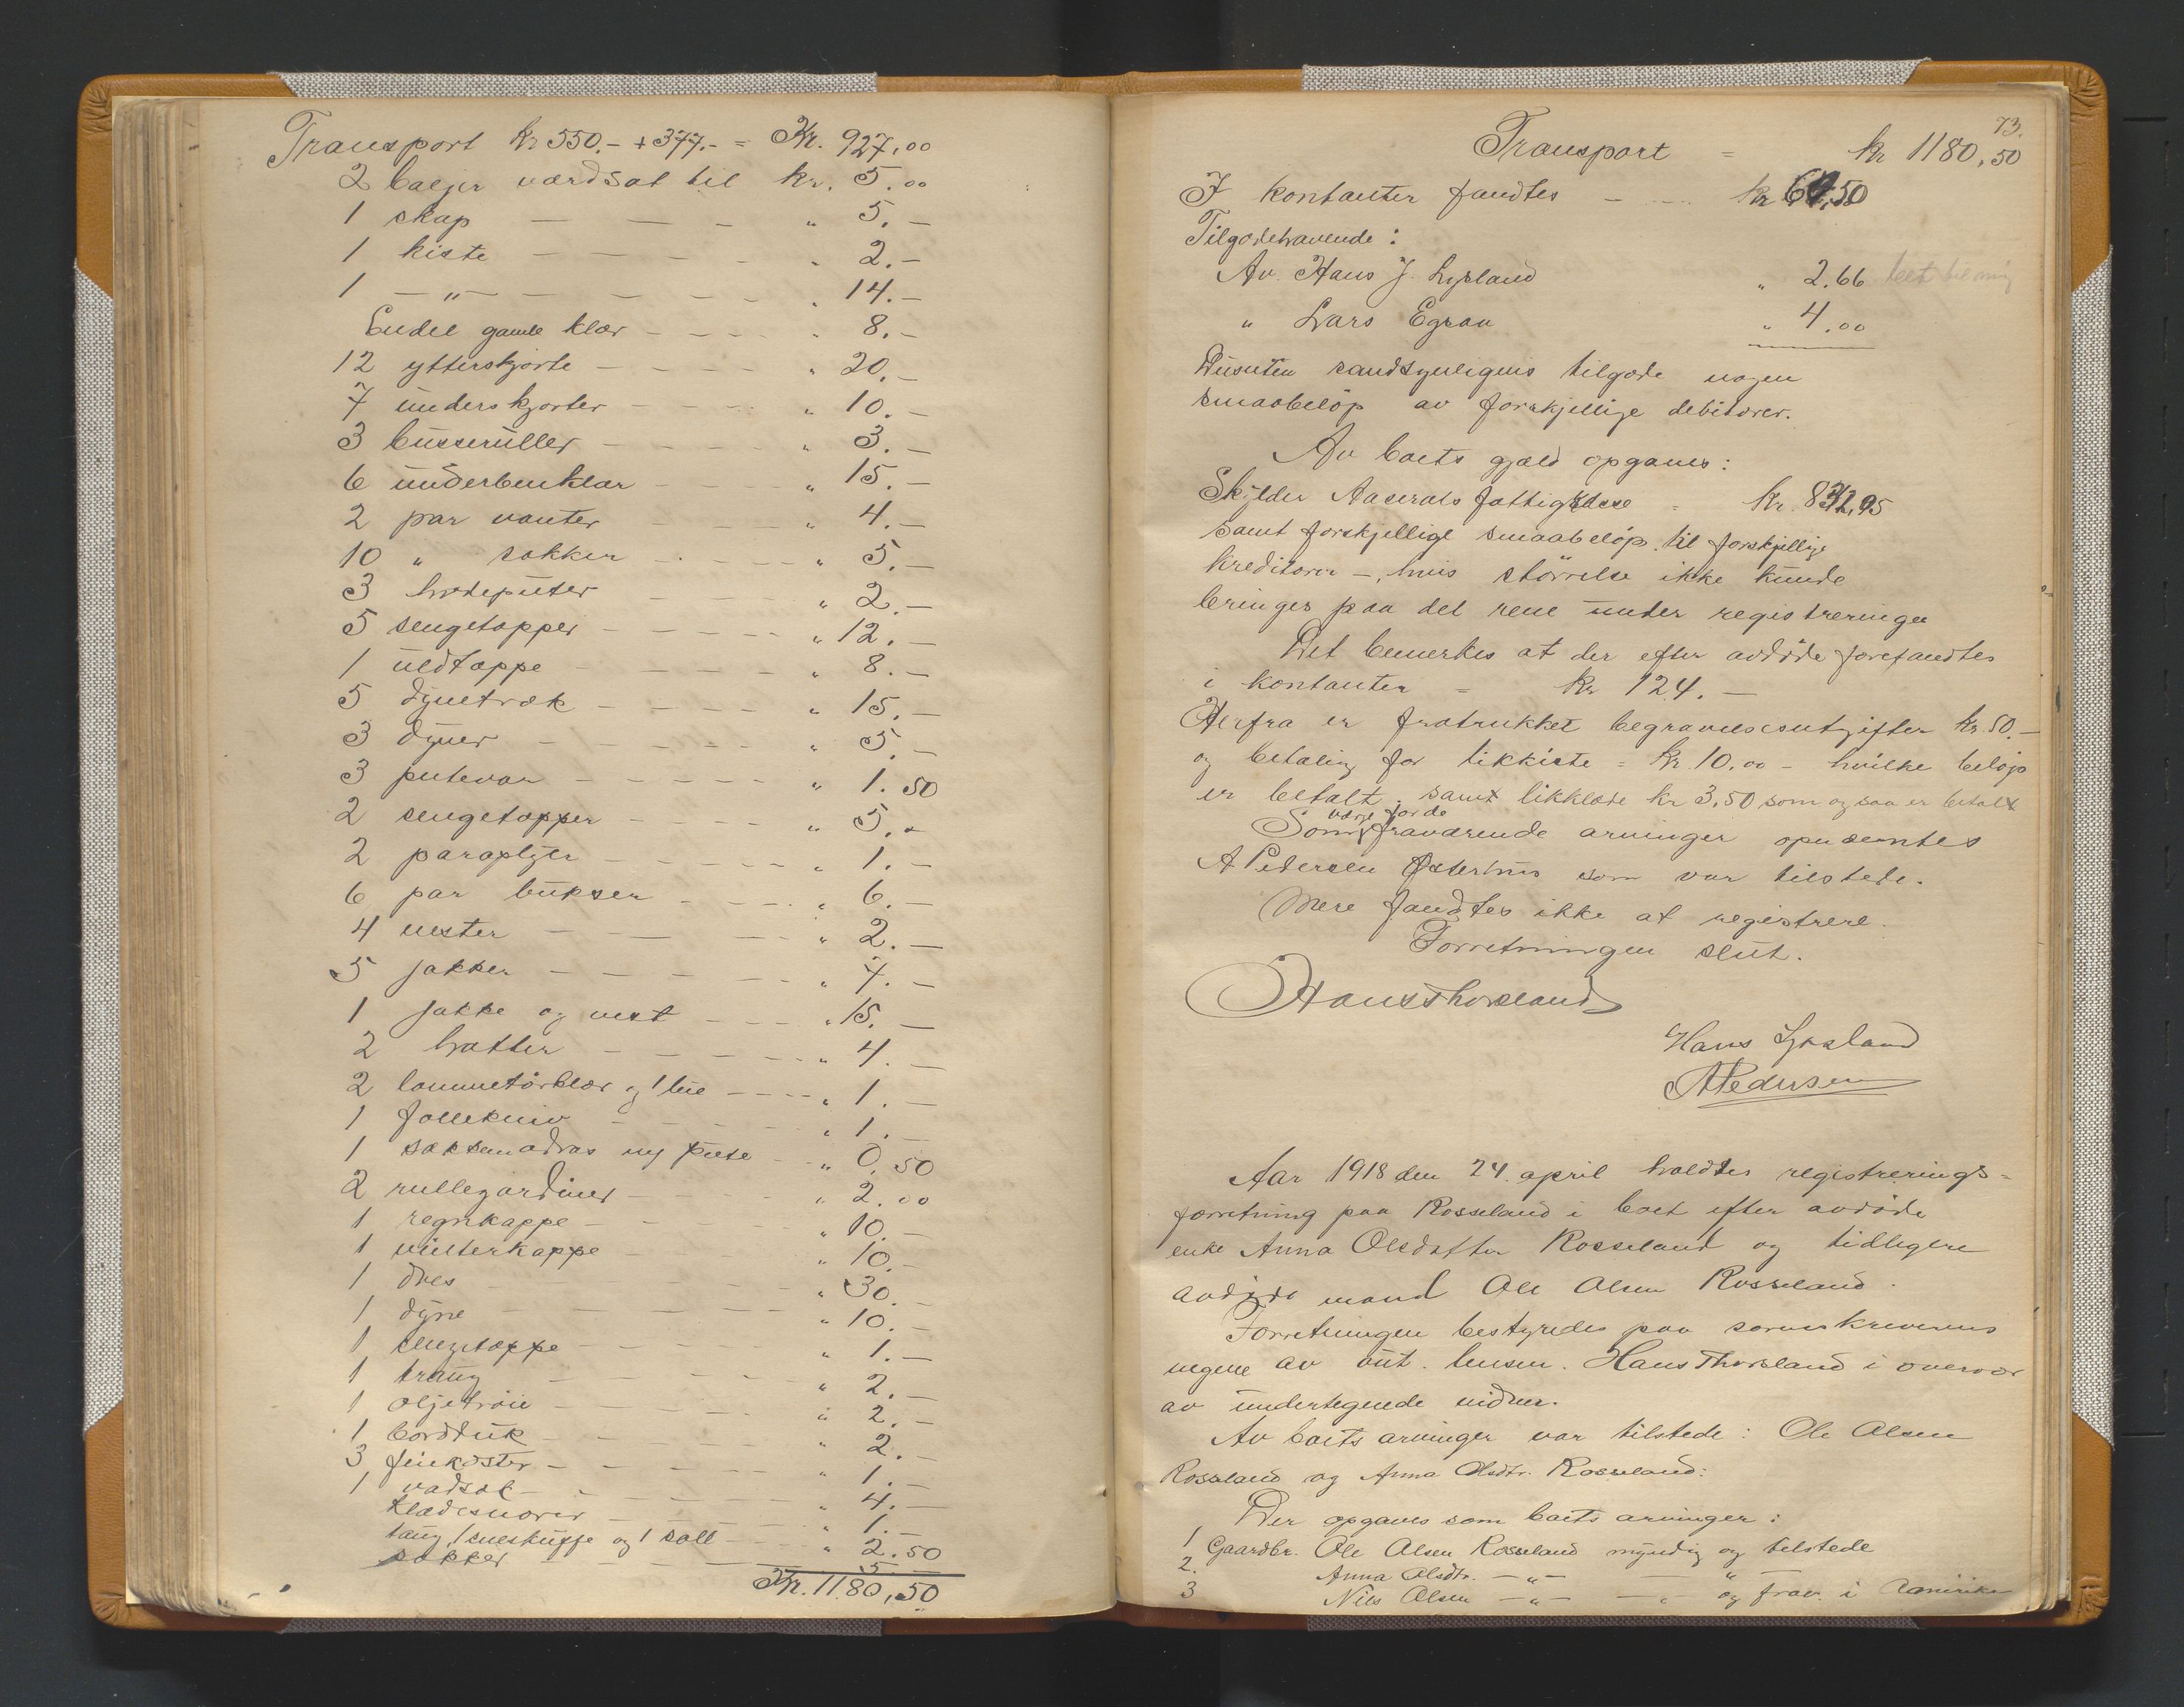 Transport kr 550.- + 377.- = Kr. 927,00
2 baljer værdsat til kr. 5.00
1 skap — — - „ 5.—
1 kiste - - - - „ 2.—
1 —„— - - - - „ 14.—
Endel gamle klær - - - „ 8.—
12 ytterskjorte - - - - „ 20.—
7 underskjorter - - - „ 10.—
3 busseruller - - - - „ 3.—
6 underbenklær - - - „ 15.—
2 par vanter - - - - „ 4.—
10 „ sokker - - - - „ 5.—
3 hodeputer - - - - „ 2.—
5 sengetæpper - - - - „ 12.—
1 uldtæppe - - - - „ 8.—
5 dynetræk - - - - „ 15.—
3 dyner - - - - „ 5.—
3 putevar - - - - „ 1.50
2 sengetæpper - - - - „ 5.00
2 paraplyer - - - - „ 1.—
6 par bukser - - - „ 6.—
4 vester - - - - „ 2.—
5 jakker - - - - „ 7.—
1 jakke og vest - - - „ 15.—
2 hatter - - - - „ 4.—
2 lommetörklær og 1 lue - - - „ 1.—
1 follekniv - - - - „ 1.—
1 sækkemadras og pute - „ 0,50
2 rullegardiner - - - „ 2.00
1 regnkappe - - - - „ 10.—
1 vinterkappe - - - „ 10.—
1 dres - - - - „ 30.—
1 dyne - - - - „ 10.—
1 sengetæppe - - - - „ 1.—
1 traug - - - - „ 2.—
1 oljetröie - - - - „ 2.—
1 bordduk - - - - „ 2.—
3 feiekoster - - - - „ 1.—
1 vadsæk - - - - „ 4.—
klædesnorer - - - - „ 1.—
taug, 1 sneskuffe og 1 sold - - „ 2.50
sokker - - - 5.—
Kr. 1180,50
73.
Transport = kr 1180,50
I kontanter fandtes - - - kr 60,50
Tilgodehavende:
Av Hans J. Ljosland „ 2.66 bet til mig
„ Lars Egraa „ 4.00
Desuten sandsynligvis tilgode nogen
smaabelöp av forskjellige debitorer.
Av boets gjæld opgaves:
Skylder Aaserals fattigkasse = Kr. 831,95
samt forskjellige smaabelöp til forskjellige
kreditorer -, hvis störrelse ikke kunde
bringes paa det rene under registreringen
Det bemerkes at der efter avdöde forefandtes
i kontanter = Kr 124.—
Herfra er fratrukket begravelsesutgifter kr. 50.—
og betaling for likkiste = Kr. 10.00 - hvilke belöp
er betalt, samt likklæde kr 3,50 som ogsaa er betalt
verge for de
Som fraværende arvinger opnævntes
A Pedersen Österhus som var tilstede.
Mere fandtes ikke at registrere.
Forretningen slut.
Hans Thorsland
Hans Ljosland
A Pedersen
Aar 1918 den 24. april holdtes registrerings-
forretning paa Rosseland i boet efter avdöde
enke Anna Olsdatter Rosseland og tidligere
avdöde mand Ole Olsen Rosseland.
Forretningen bestyredes paa sorenskriverens
vegne av aut. lensm. Hans Thorsland i overvær
av undertegnede vidner.
Av boets arvinger var tilstede: Ole Olsen
Rosseland og Anna Olsdtr. Rosseland:
Der opgaves som boets arvinger:
1 Gaardbr. Ole Olsen Rosseland myndig og tilstede
2. Anna Olsdtr. —„— — „ —
3 Nils Olsen —„— — „ og frav. i Amerika